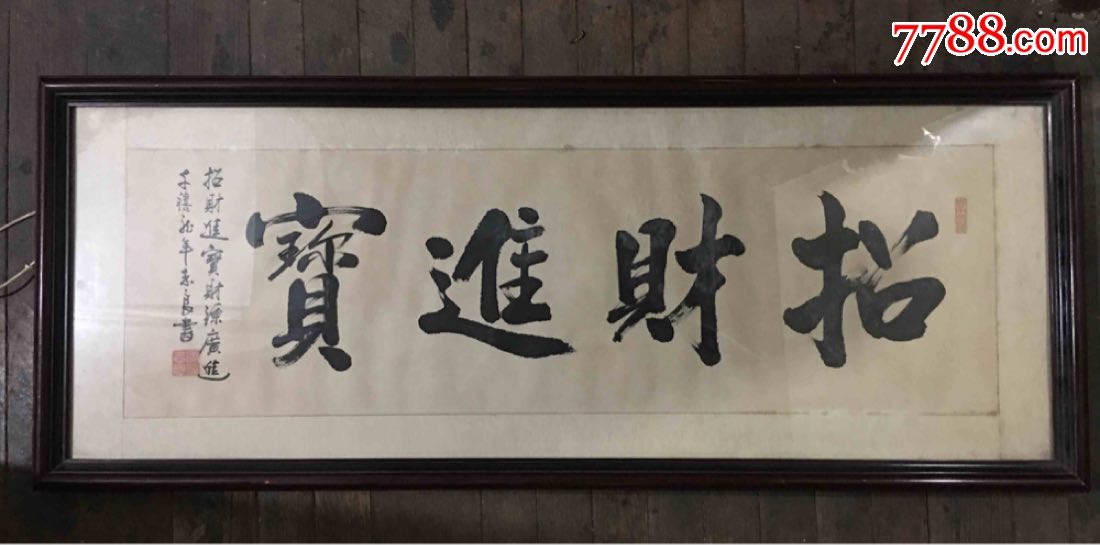 7788.com
招財進寶
招財進寶財源廣進
千禧龍年志良書